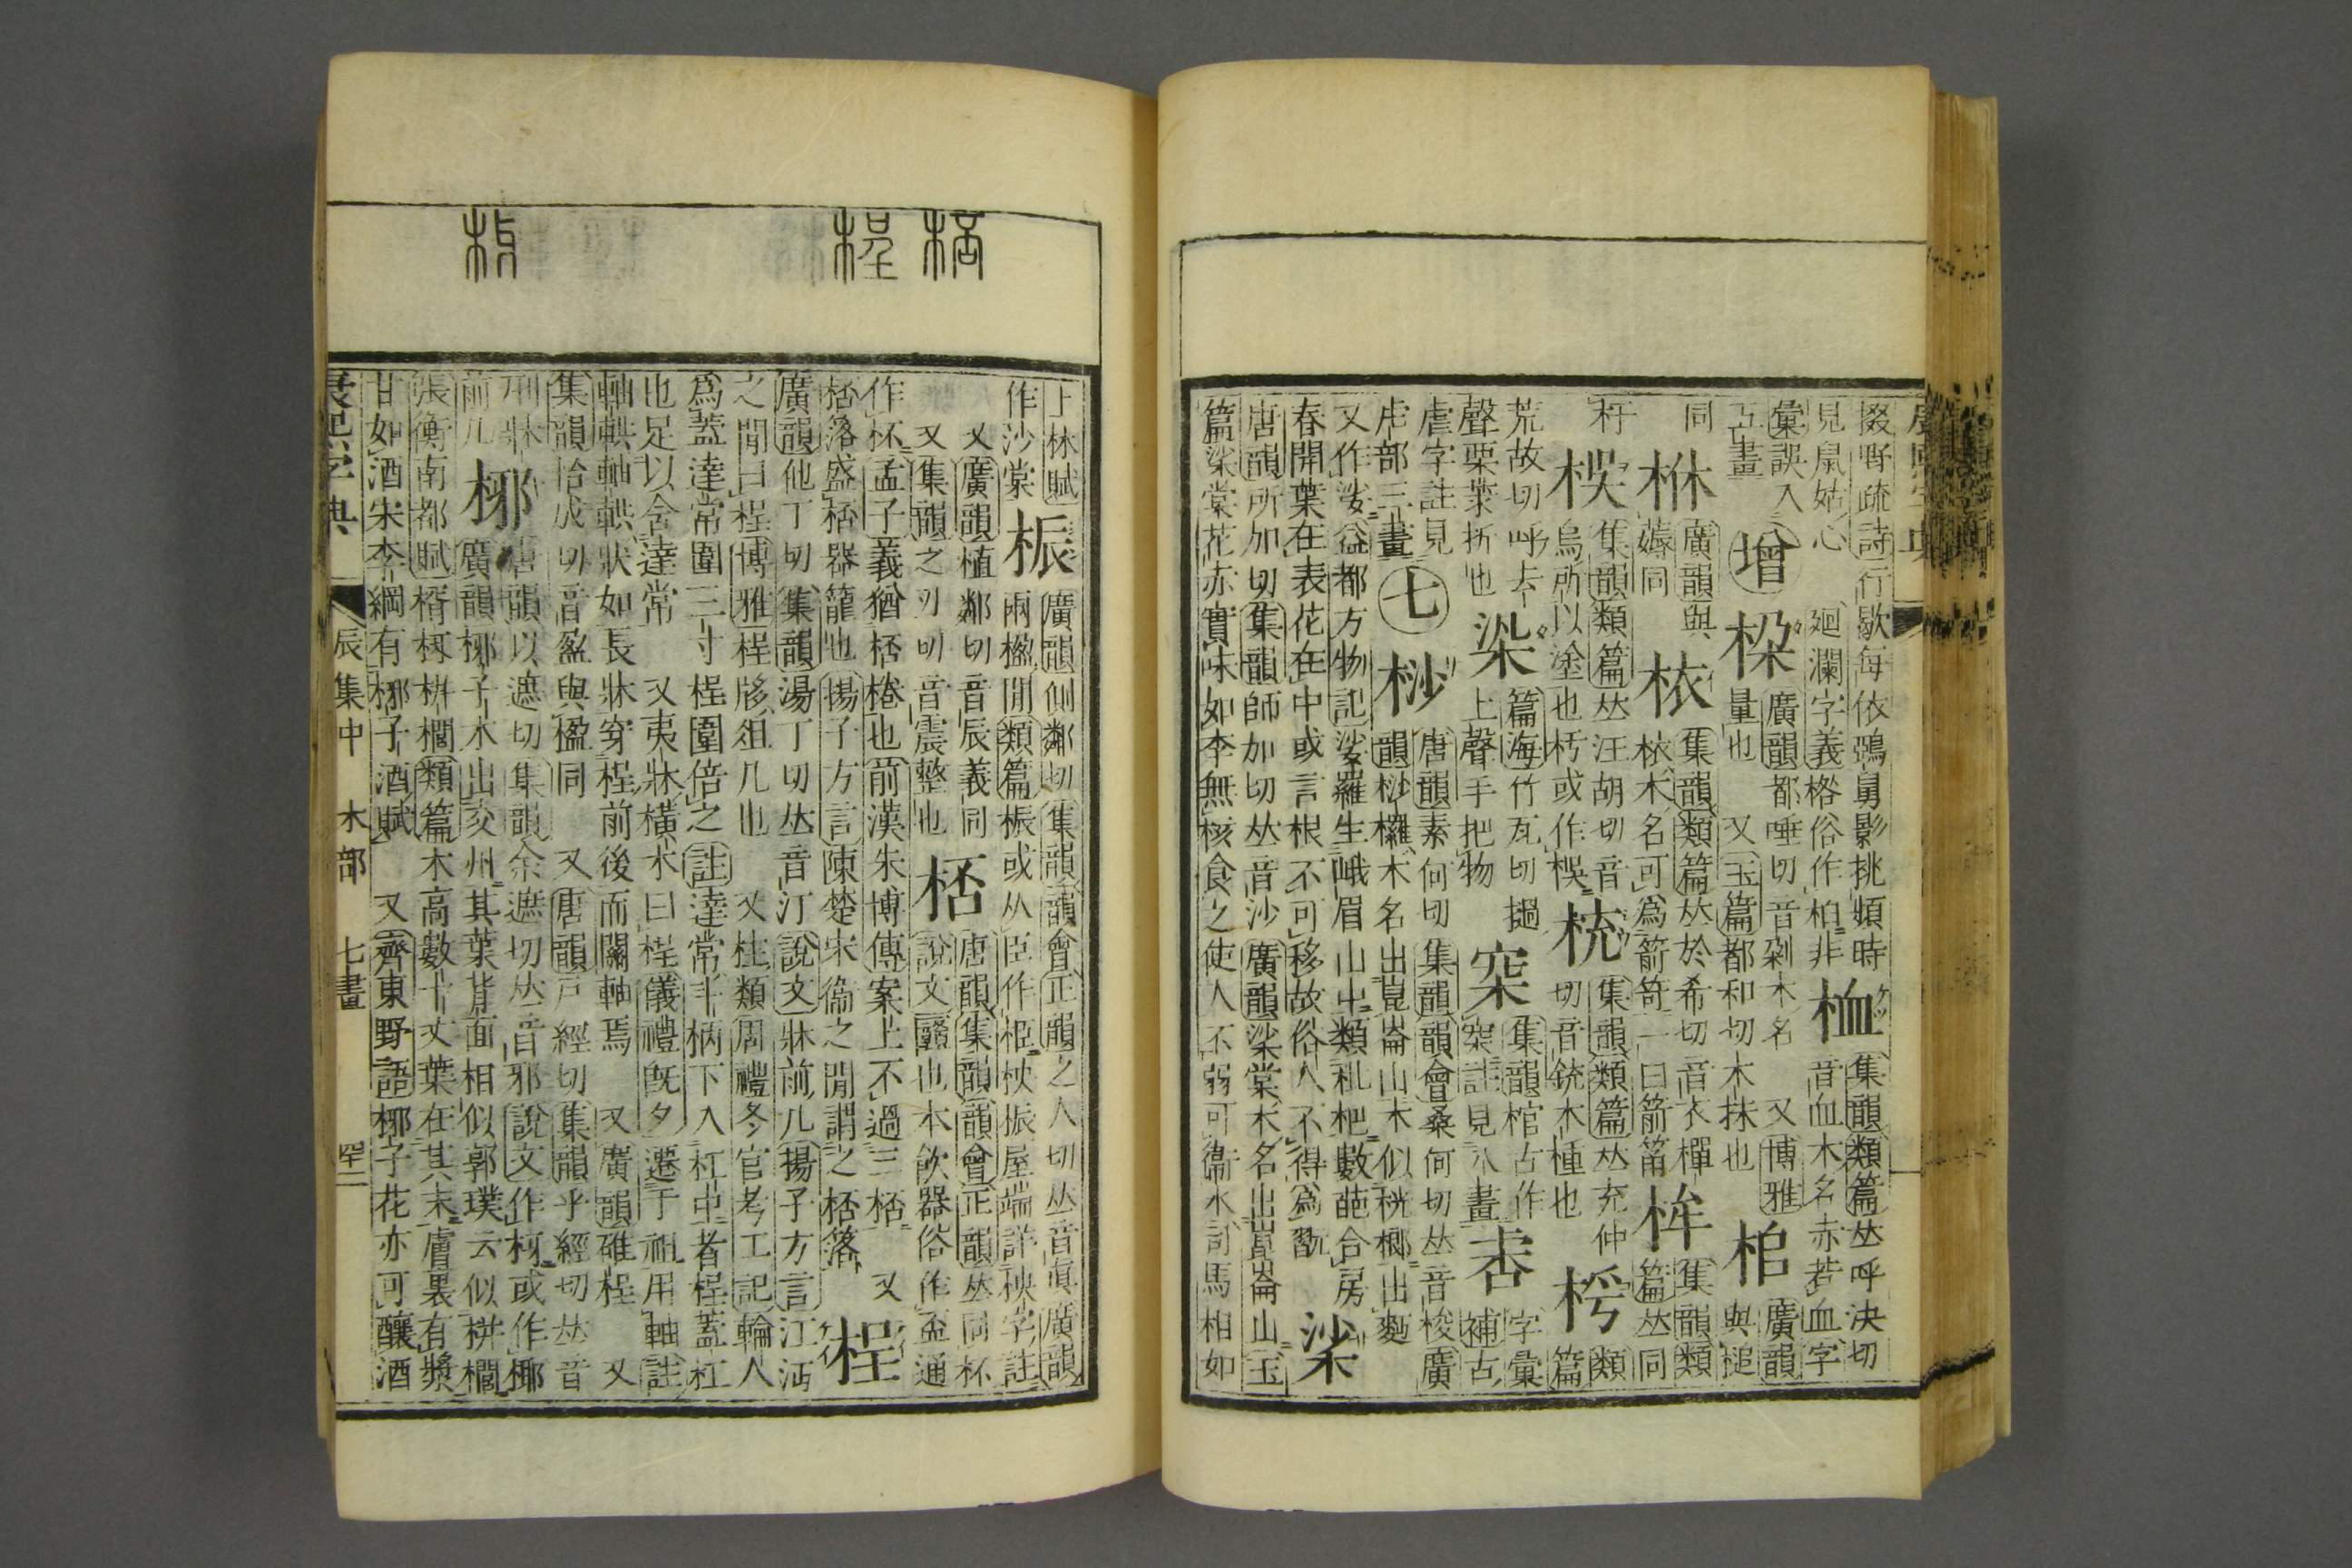 掇野疏詩行歇每依鵶舅影挑頻時
見鼠姑心 廻瀾字義格俗作柏非
桖
集韻類篇𠀤呼決切
音血木名赤若血字
彙誤入
五畫
增
桗
廣韻都唾切音剁木名 又博雅
量也 又玉篇都和切木抹也
桘
廣韻
與槌
同
烌
廣韻與
㛪同
㭡
集韻類篇𠀤於希切音衣樿
㭡木名可爲箭笴一曰箭筩
桙
集韻類
篇𠀤同
杅
㭌
集韻類篇𠀤汪胡切音
烏所以塗也杇或作㭌
㧤
集韻類篇𠀤充仲
切音銃木種也
枵
類
篇
荒故切呼去
聲栗葉折也
篇海竹瓦切撾
上聲手把物
集韻棺古作
註見八畫
字彙
補古
虐字註見
虍部三畫
七
桫
唐韻素何切集韻韻會桑何切𠀤音梭廣
韻桫欏木名出崑崙山木似桄榔出麪
又作娑益都方物記娑羅生峨眉山中類枇杷數葩合房
春開葉在表花在中或言根不可移故俗人不得爲翫
桬
唐韻所加切集韻師加切𠀤音沙廣韻桬棠木名出崑崙山玉
篇桬棠花赤實味如李無核食之使人不溺可禦水司馬相如
上林賦
作沙棠
桭
廣韻側鄰切集韻韻會正韻之人切𠀤音眞廣韻
兩楹閒類篇桭或从臣作柜柍桭屋端詳柍字註
又廣韻植鄰切音辰義同
又集韻之刃切音震整也
桮
唐韻集韻韻會正韻𠀤同杯
說文䉶也本飲器俗作盃通
作杯孟子義猶桮棬也前漢朱博傳案上不過三桮 又
桮落盛桮器籠也揚子方言陳楚宋衞之閒謂之桮落
桯
廣韻他丁切集韻湯丁切𠀤音汀說文牀前几揚子方言江沔
之閒曰桯博雅桯㢋俎几也 又柱類周禮冬官考工記輪人
爲蓋達常圍三寸桯圍倍之註達常斗柄下入杠中者桯蓋杠
也足以含達常 又夷牀橫木曰桯儀禮旣夕遷于祖用軸註
軸輁軸輁狀如長牀穿桯前後而關軸焉 又廣韻碓桯 又
集韻怡成切音盈與楹同 又唐韻戸經切集韻乎經切𠀤音
前几
㭨
唐韻以遮切集韻余遮切𠀤音邪說文作枒或作椰
廣韻㭨子木出交州其葉背面相似郭璞云似栟櫚
張衡南都賦楈枒栟櫚類篇木高數十丈葉在其末膚裏有漿
甘如酒宋李綱有㭨子酒賦 又齊東野語㭨子花亦可釀酒
康熙字典
辰集中 木部 七畫
四十二